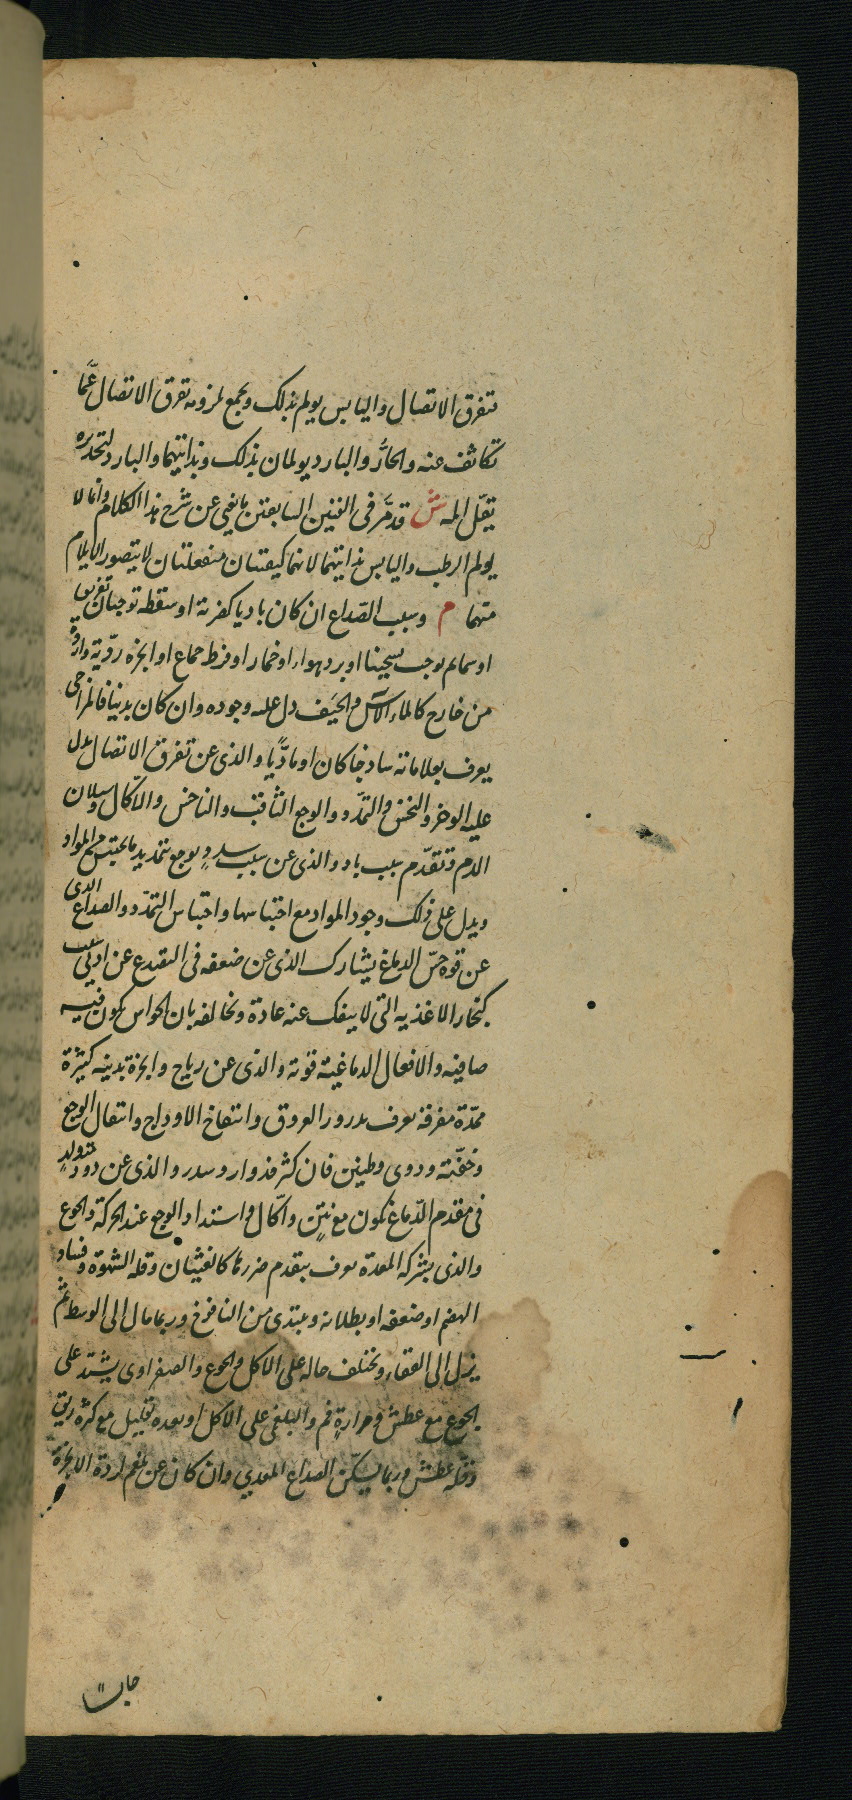 تتفرق الاتصال واليابس يولم بذلك ويجمع لزومه تفرق الاتصال عمّا
تكاثف عنه والحارّ والبارد يولمان بذلك وبذاتيهما والبارد لتخديره
يقلّ المه ش قد مرّ فى الفنين السابقتن ما يغنى عن شرح هذا الكلام وانما لا
يولم الرطب واليابس بذاتيهما لانهما كيفيتان منفعلتان لا يتصور الايلام
منهما م وسبب الصداع ان كان باديا كضربة او سقطه توجبان تفرق
او سمايم توجب تسخينا او برد هواء او خمار او فرط جماع او ابخرة رديّة واردة
من خارج كالماء الآسن والجيف دل عليه وجوده وان كان بدنيا فالمزاجى
يعرف بعلاماته ساذجا كان او مادّيا والذى عن تفرق الاتصال يدل
عليه الوخز والنخس والتمدّد والوجع الثاقب والناخس والاكّال وسيلان
الدم وتقدّم سبب باد والذى عن سبب سددٍ يوجع بتمديد ما يحتبس من المواد
ويدل على ذلك وجود المواد مع احتباسها واحتباس التمدّد والصداع الذى
عن قوة حسّ الدماغ يشارك الذى عن ضعفه فى التصدع عن ادنى سبب
كبخار الاغذيه التى لا ينفك عنه عادة ويخالفه بان الحواس يكون فيه
صافيه والافعال الدماغيه قوية والذى عن رياح وابخرة بدنيه كثيرة
ممدّة مفرقة يعرف بدرور العروق وانتفاخ الاوداج وانتقال الوجع
وخفّته ودوى وطنين فان كثر فدوار وسدر والذى عن دود متولد
فى مقدم الدّماغ يكون مع نتنٍ واكّال واشتداد الوجع عند الحركة والجوع
والذى بشركه المعدة يعرف بتقدم ضرر ما كالغثيان وقلة الشهوة وفساد
الهضم او ضعفه او بطلانه ويبتدى من اليافوخ وربما مال الى الوسط ثم
ينزل الى القفاء ويختلف حاله على الاكل والجوع والصفراوى يشتد على
الجوع مع عطش ومرارة فم والبلغمى على الاكل او بعده بقليل مع كثرة ريق
وقلّة عطش وربما يسكّن الصداع المعدى وان كان عن بلغم اردة الابخرة